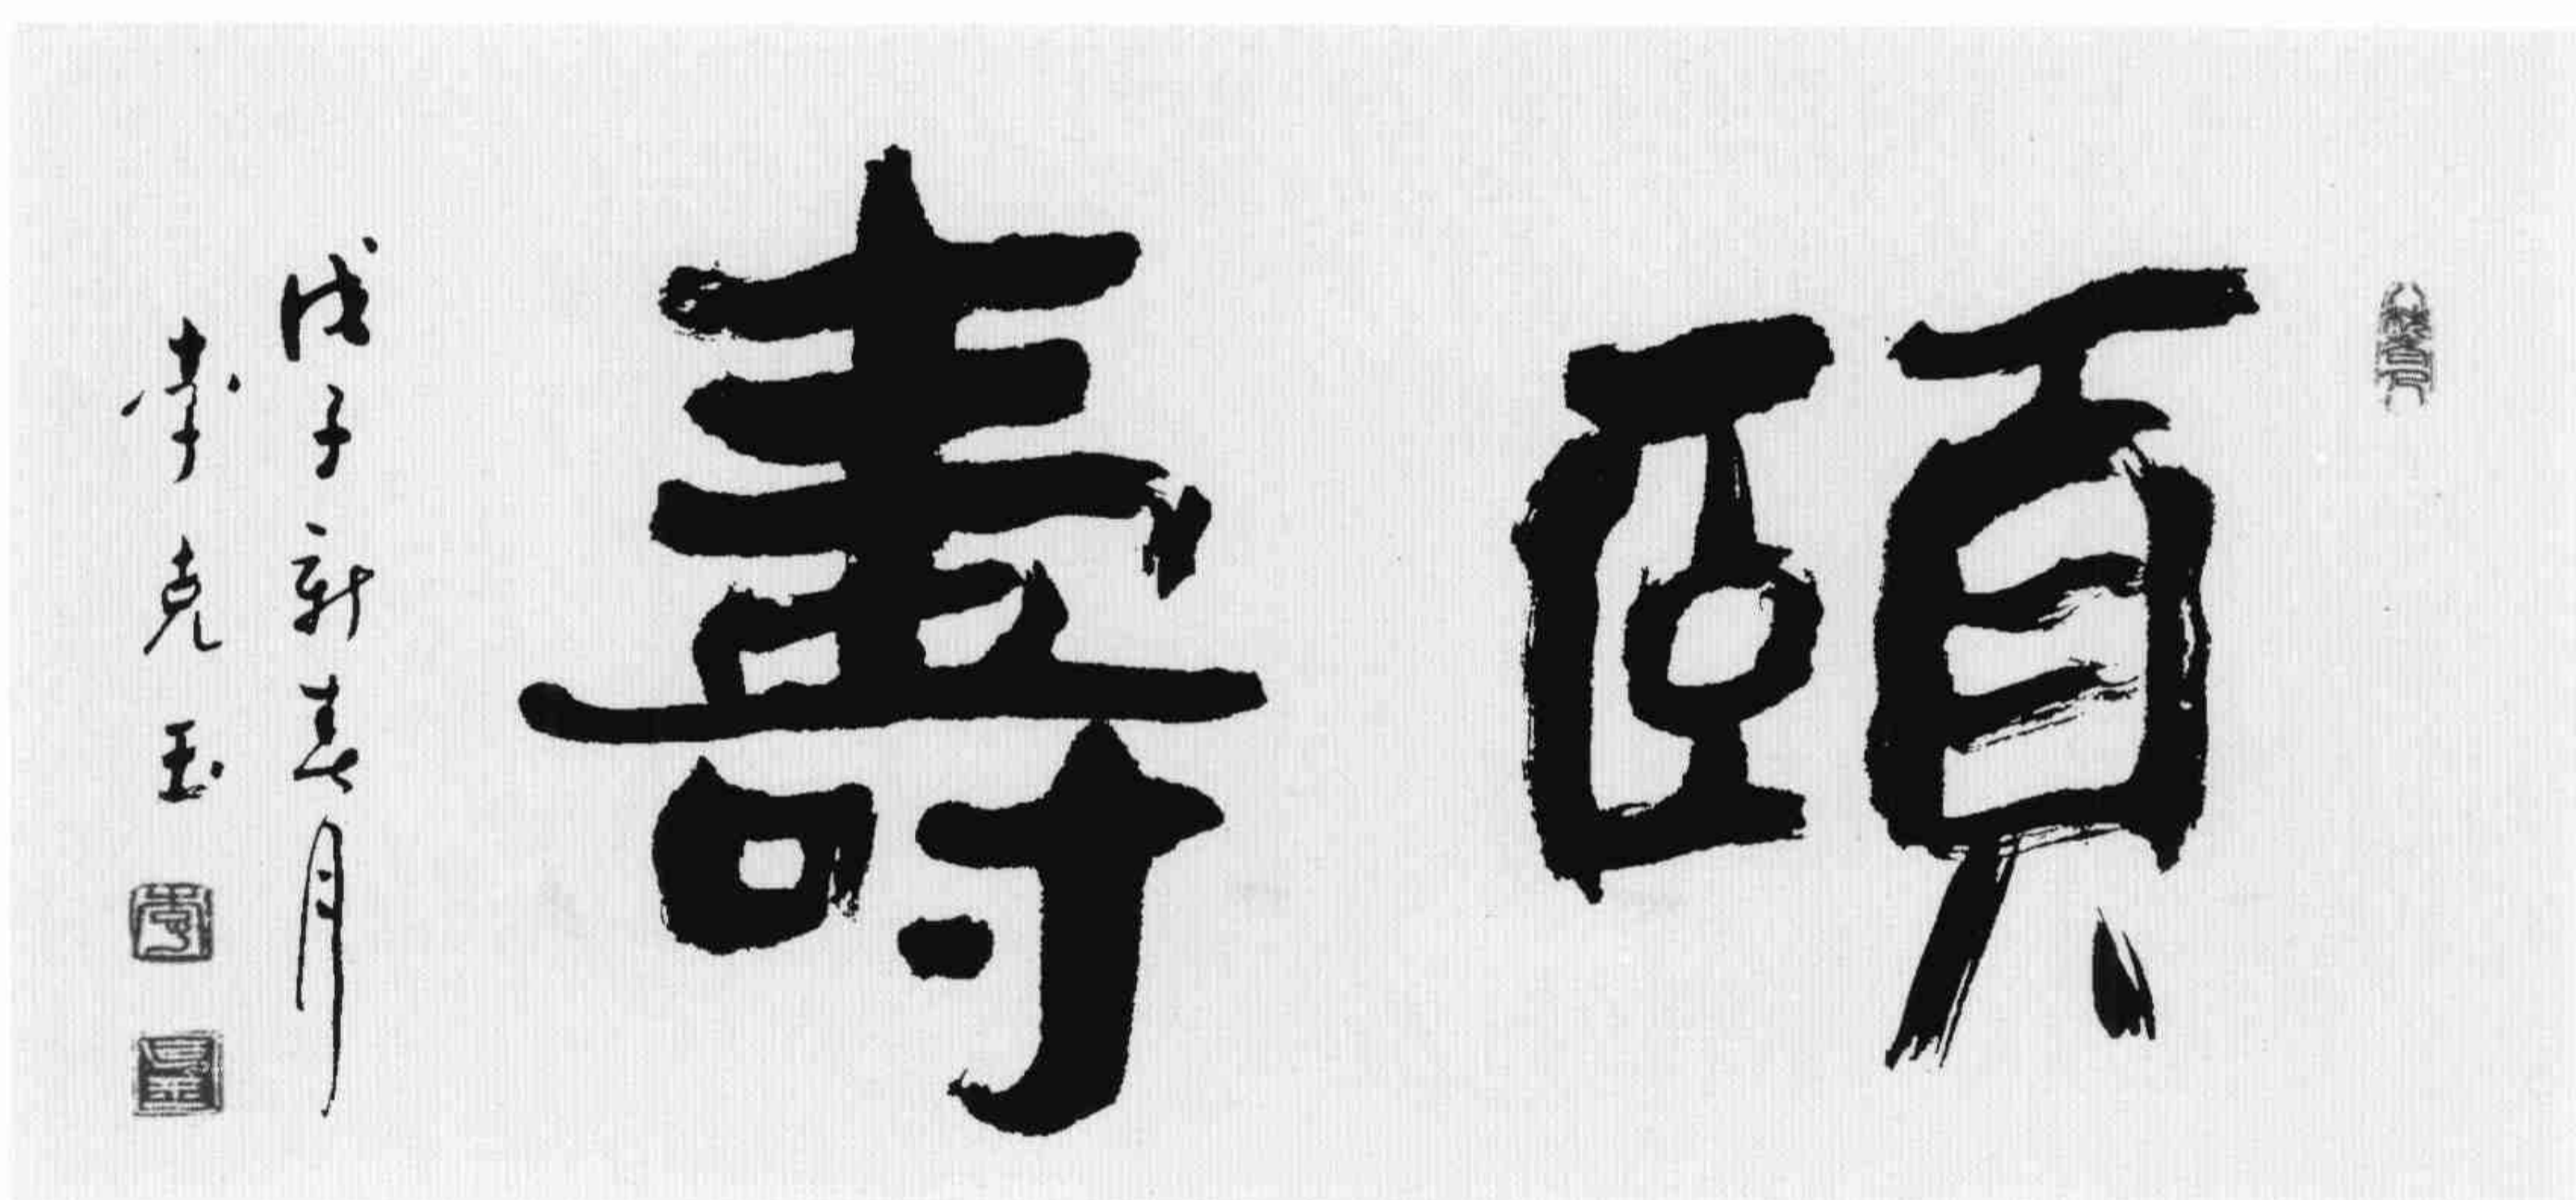 頤壽
戊子新春月
李克玉